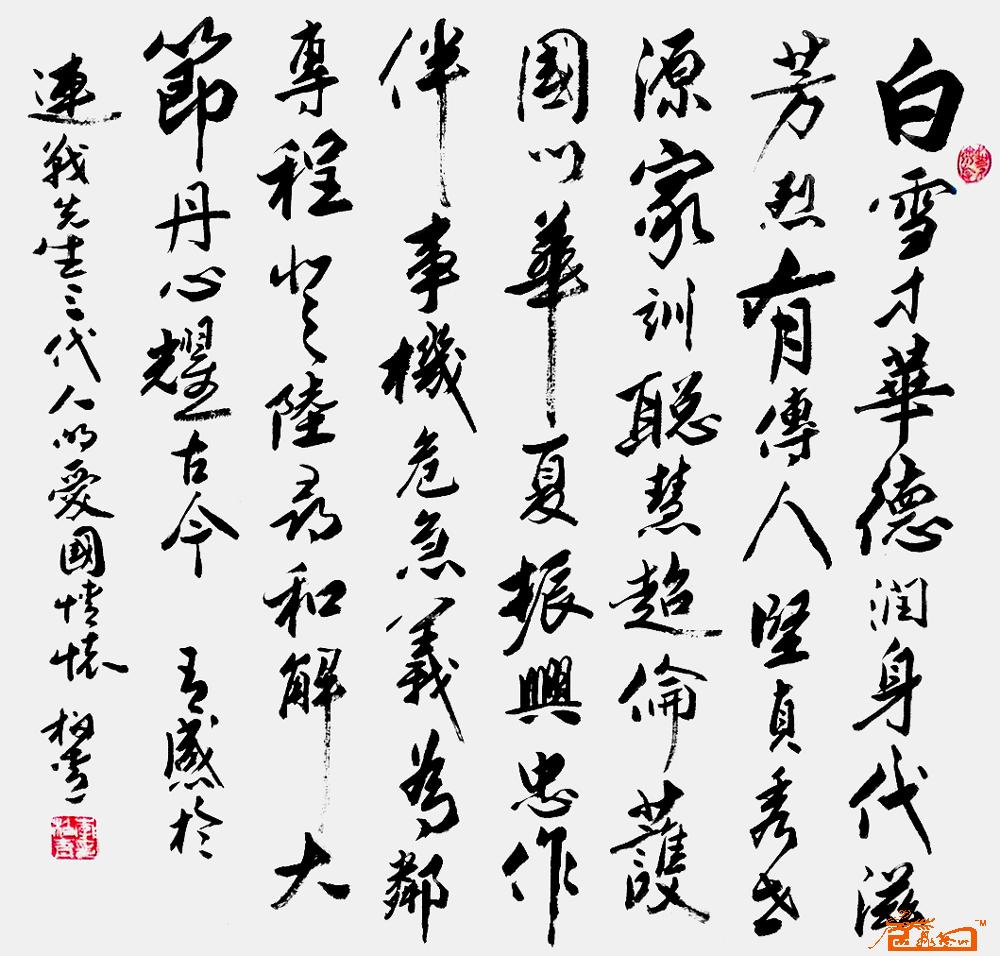 白雪才華德润身代滋
芳烈有傳人堅貞秀世
源家訓聪慧超倫護
國门華夏振興忠作
伴事機危急義為鄰
專程登陸尋和解大
節丹心耀古今 有感於
連戰先生三代人的愛國情懷 柏雪